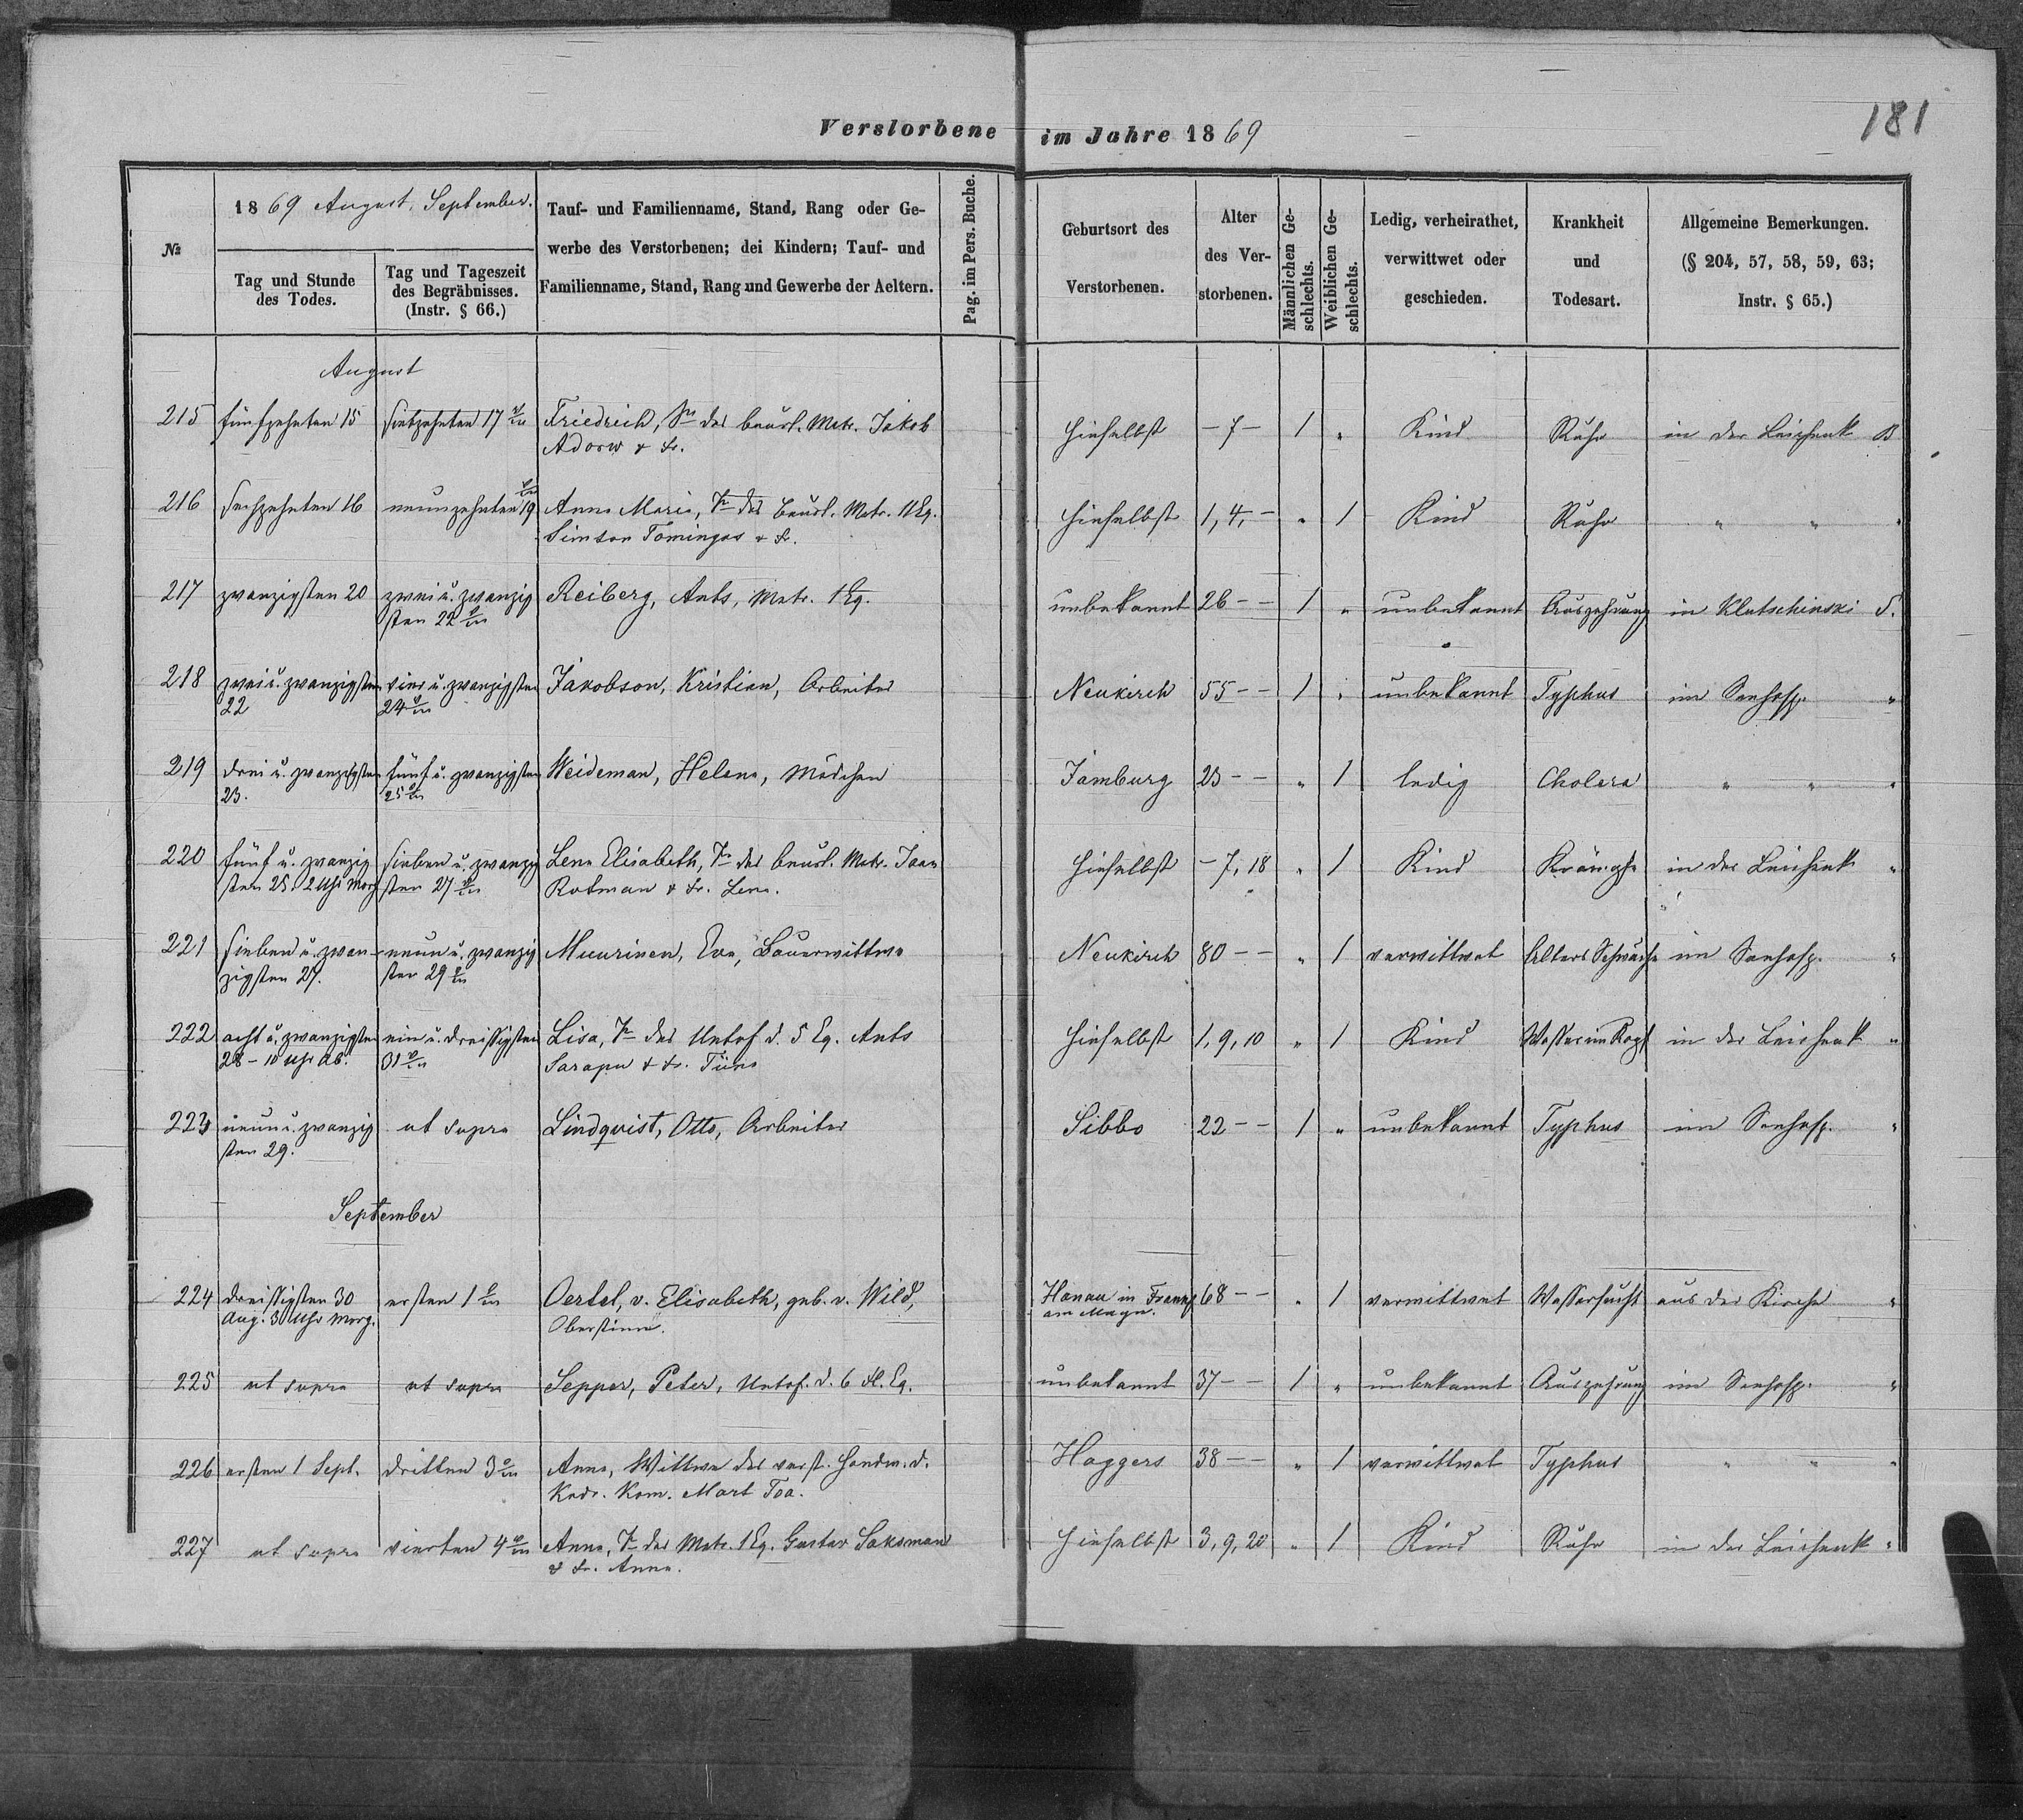 Verstorbene im Jahre 1869
181
№
1869 August, September.
Tag und Stunde des Todes.
Tag und Tageszeit des Begräbnisses. (Instr. § 66.)
Tauf- und Familienname, Stand, Rang oder Ge-
werbe des Verstorbenen; dei Kindern; Tauf- und
Familienname, Stand, Rang und Gewerbe der Aeltern.
Pag. im Pers. Buche.
Geburtsort des Verstorbenen.
Alter des Ver-storbenen.
Männlichen Ge-schlechts.
Weiblichen Ge-schlechts.
Ledig, verheirathet, verwittwet oder geschieden.
Krankheit und Todesart.
Allgemeine Bemerkungen. (§ 204, 57, 58, 59, 63; Instr. § 65.)
August
215 fünfzehnten 15 siebzehnten 17 Friedrich, Sn des beurl. Matr. Jakob hieselbst - 7 - 1 " Kind Ruhr in der Leichenk. B
Adorw & Fr.
216 sechzehnten 16 neunzehnten 19 Anna Maria, Tr des beurl. Matr. 11 Eq. hieselbst 1, 4, - " 1 Kind Ruhr " " "
Simson Tomingas & Fr.
217 zwanzigsten 20 zwei u. zwanzig Reiberg, Ants, Matr. 1 Eq. unbekannt 26 - - 1 " unbekannt Auszehrung in Klutschinski S.
sten 22
218 zwei u. zwanzigsten vier u. zwanzigsten Jakobson, Kristian, Arbeiter Neukirch 55 - - 1 " unbekannt Typhus im Seehosp. "
22 24
219 drei u. zwanzigsten fünf u. zwanzigsten Weideman, Helena, Mädchen Jamburg 23 - - " 1 ledig Cholera " " "
23. 25
220 fünf u. zwanzig sieben u. zwanzig Lena Elisabeth, Tr des beurl. Matr. Jaan hieselbst - 7, 18 " 1 Kind Krämpfe in der Leichenk. "
sten 25. 2 Uhr Morg sten 27 Rotman & Fr. Lena.
221 sieben u. zwan- neun u. zwanzig Muurinen, Eva, Bauerwittwe Neukirch 80 - - " 1 verwittwet Alters Schwäche im Seehosp. "
zigsten 27. sten 29
222 acht u. zwanzigsten ein u. dreissigsten Lisa, Tr des Untof d. 5 Eq. Ants hieselbst 1, 9, 10 " 1 Kind Wasser im Kopf in der Leichenk. "
28 - 10 Uhr Ab. 31 Sarapu & Fr. Tiina
223 neun u. zwanzig ut supra Lindqvist, Otto, Arbeiter Sibbo 22 - - 1 " unbekannt Typhus im Seehosp. "
sten 29.
September
224 dreissigsten 30 ersten 1 Oertel, v. Elisabeth, geb. v. Wild, Hanau in 68 - - " 1 verwittwet Wassersucht aus der Kirche "
Aug. 3 Uhr Morg. Oberstinn. am Mayn.
225 ut supra ut supra Seppor, Peter, Untof. d. 6 fl. Eq. unbekannt 37 - - 1 " unbekannt Auszehrung im Seehosp. "
226 ersten 1 Sept. dritten 3 Anna, Wittwe des verst. Handw. d. Haggers 38 - - " 1 verwittwet Typhus " " "
Kadr. Kom. Mart Toa.
227 ut supra vierten 4 Anna, Tr des Matr. 1 Eq. Gustav Saksman hieselbst 3, 9, 20 " 1 Kind Ruhr in der Leichenk. "
& Fr. Anna.